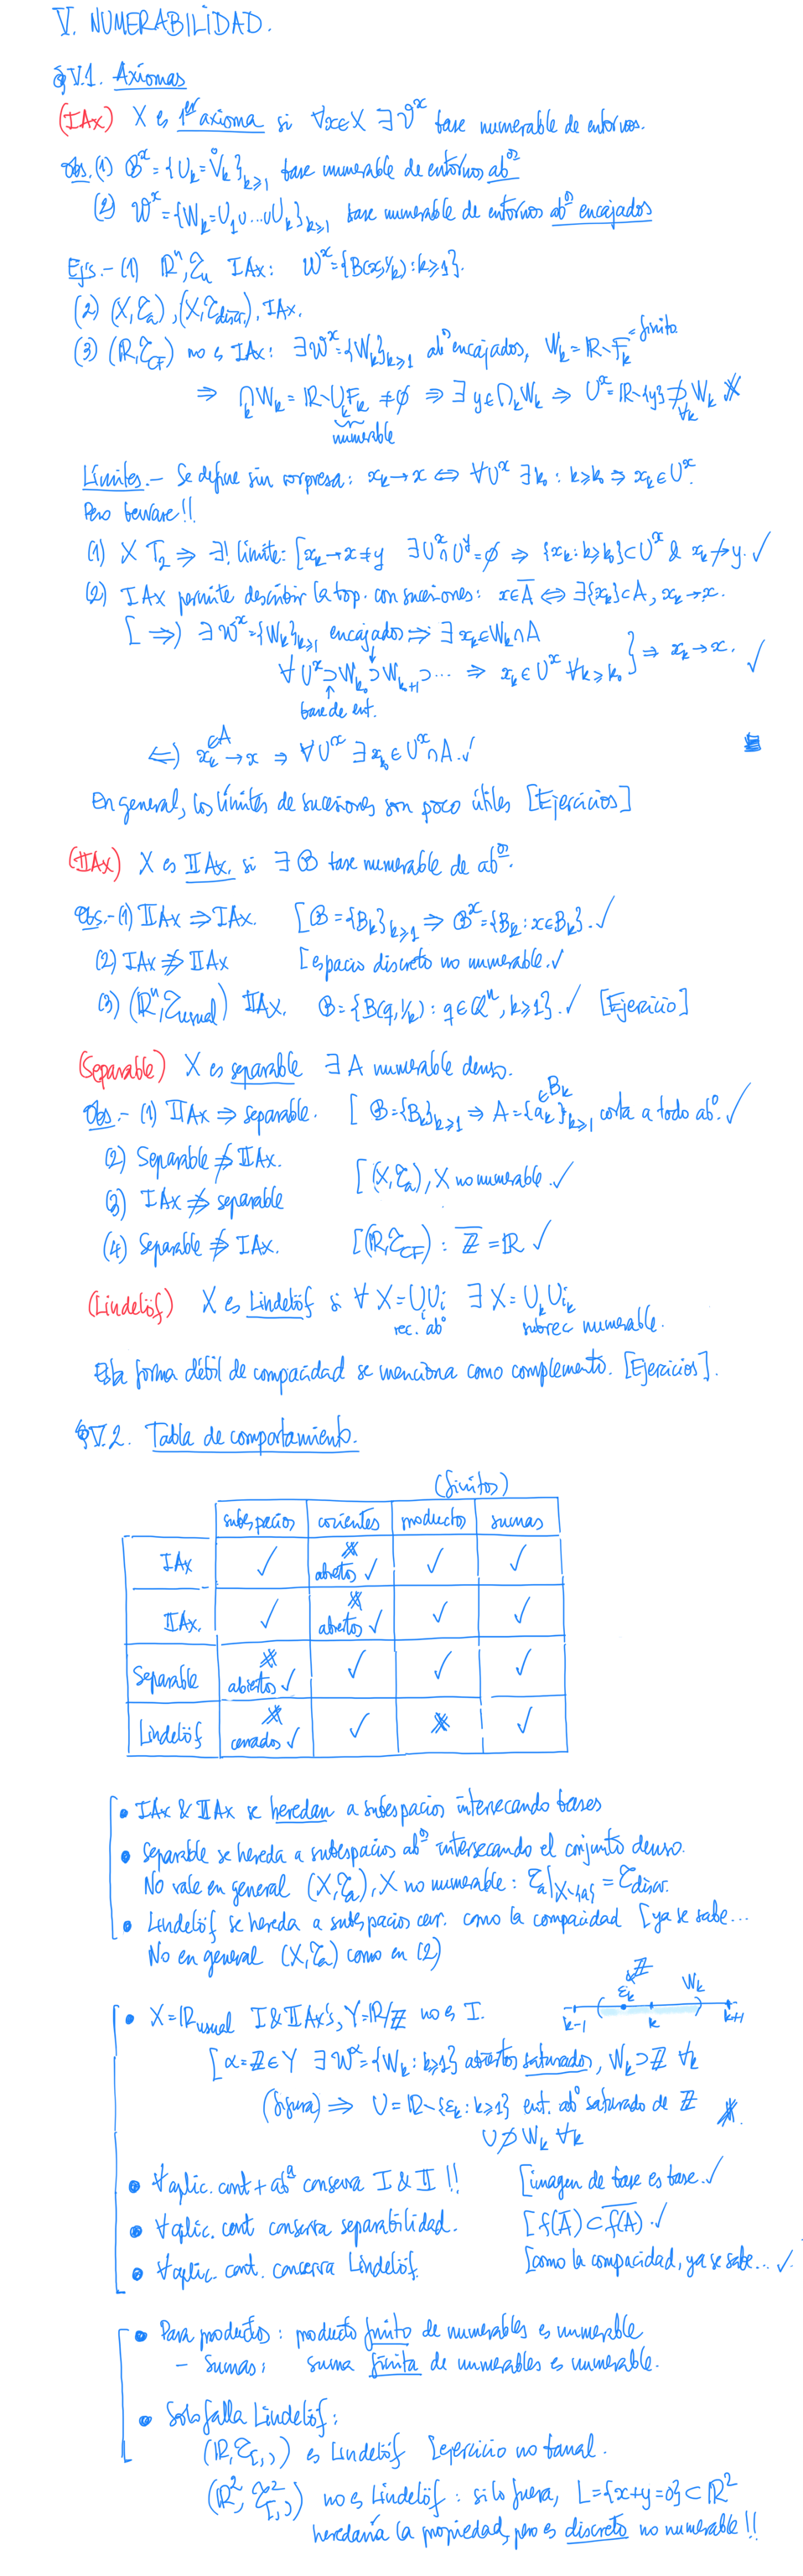 V. NUMERABILIDAD.
§V.1. Axiomas
(IAx) X es 1er axioma si ∀x∈X ∃ 𝒱^x base numerable de entornos.
Obs. (1) ℬ^x = {U_k = V̊_k}_{k≥1} base numerable de entornos ab^os
(2) 𝒲^x = {W_k = U_1∪...∪U_k}_{k≥1} base numerable de entornos ab^os encajados
Ejs.- (1) ℝ^n, 𝒯_u IAx: 𝒲^x = {B(x,1/k) : k≥1}.
(2) (X,𝒯_a), (X,𝒯_discr.), IAx.
(3) (ℝ,𝒯_CF) no es IAx: ∃𝒲^x = {W_k}_{k≥1} ab^os encajados, W_k = ℝ∖F_k ← finito
⇒ ⋂_k W_k = ℝ∖⋃_k F_k ≠ ∅ ⇒ ∃ y∈⋂_k W_k ⇒ U^x = ℝ∖{y} ⊅ W_k ∀k ※
numerable
Límites.- Se define sin sorpresa: x_k→x ⇔ ∀U^x ∃k₀ : k≥k₀ ⇒ x_k∈U^x.
Pero beware!!
(1) X T₂ ⇒ ∃! límite: [x_k→x≠y ∃U^x∩U^y=∅ ⇒ {x_k : k≥k₀}⊂U^x & x_k↛y. ✓
(2) IAx permite describir la top. con sucesiones: x∈A̅ ⇔ ∃{x_k}⊂A, x_k→x.
[⇒) ∃ 𝒲^x = {W_k}_{k≥1} encajados ⇒ ∃ x_k∈W_k∩A
∀ U^x ⊃ W_{k₀} ⊃ W_{k₀+1} ⊃ ... ⇒ x_k∈U^x ∀k≥k₀ } ⇒ x_k→x. ✓
base de ent.
⇐) x_k→x ⇒ ∀U^x ∃ x_{k₀}∈U^x∩A. ✓
∈A
En general, los límites de sucesiones son poco útiles [Ejercicios]
(IIAx) X es IIAx. si ∃ ℬ base numerable de ab^os.
Obs.- (1) IIAx ⇒ IAx. [ℬ = {B_k}_{k≥1} ⇒ ℬ^x = {B_k : x∈B_k}. ✓
(2) IAx ⇏ IIAx [espacio discreto no numerable. ✓
(3) (ℝ^n, 𝒯_usual) IIAx. ℬ = {B(q,1/k) : q∈ℚ^n, k≥1}. ✓ [Ejercicio]
(Separable) X es separable ∃ A numerable denso.
Obs.- (1) IIAx ⇒ separable. [ℬ = {B_k}_{k≥1} ⇒ A = {a_k}_{k≥1} corta a todo ab^o. ✓
∈B_k
(2) Separable ⇏ IIAx. [(X,𝒯_a), X no numerable. ✓
(3) IAx ⇏ separable
(4) Separable ⇏ IAx. [(ℝ,𝒯_CF) : ℤ̅ = ℝ ✓
(Lindelöf) X es Lindelöf si ∀ X = ⋃_i U_i ∃ X = ⋃_k U_{i_k}
rec. ab^o subrec numerable.
Esta forma débil de compacidad se menciona como complemento. [Ejercicios].
§V.2. Tabla de comportamiento.
(finitos)
subespacios cocientes productos sumas
IAx ✓ ※ abiertos ✓ ✓ ✓
IIAx. ✓ ※ abiertos ✓ ✓ ✓
Separable ※ abiertos ✓ ✓ ✓ ✓
Lindelöf ※ cerrados ✓ ✓ ※ ✓
• IAx & IIAx se heredan a subespacios intersecando bases
• Separable se hereda a subespacios ab^os intersecando el conjunto denso.
No vale en general (X,𝒯_a), X no numerable : 𝒯_a|_{X∖{a}} = 𝒯_discr.
• Lindelöf se hereda a subespacios cerr. como la compacidad [ya se sabe...
No en general (X,𝒯_a) como en (2)
• X = ℝ_usual I & IIAx's, Y = ℝ/ℤ no es I.
∉ℤ ε_k W_k k-1 k k+1
[α = ℤ∈Y ∃ 𝒲^α = {W_k : k≥1} abiertos saturados, W_k⊃ℤ ∀k
(figura) ⇒ U = ℝ∖{ε_k : k≥1} ent. ab^o saturado de ℤ ※.
U⊅W_k ∀k
• ∀ aplic. cont + ab^a conserva I & II !! [imagen de base es base. ✓
• ∀ aplic. cont conserva separabilidad. [f(A̅) ⊂ \overline{f(A)}. ✓
• ∀ aplic. cont. conserva Lindelöf. [como la compacidad, ya se sabe... ✓.
• Para productos : producto finito de numerables es numerable
— Sumas: suma finita de numerables es numerable.
• Solo falla Lindelöf :
(ℝ,𝒯_[,)) es Lindelöf [ejercicio no banal.
(ℝ², 𝒯²_[,)) no es Lindelöf : si lo fuera, L = {x+y=0}⊂ℝ²
heredaría la propiedad, pero es discreto no numerable!!